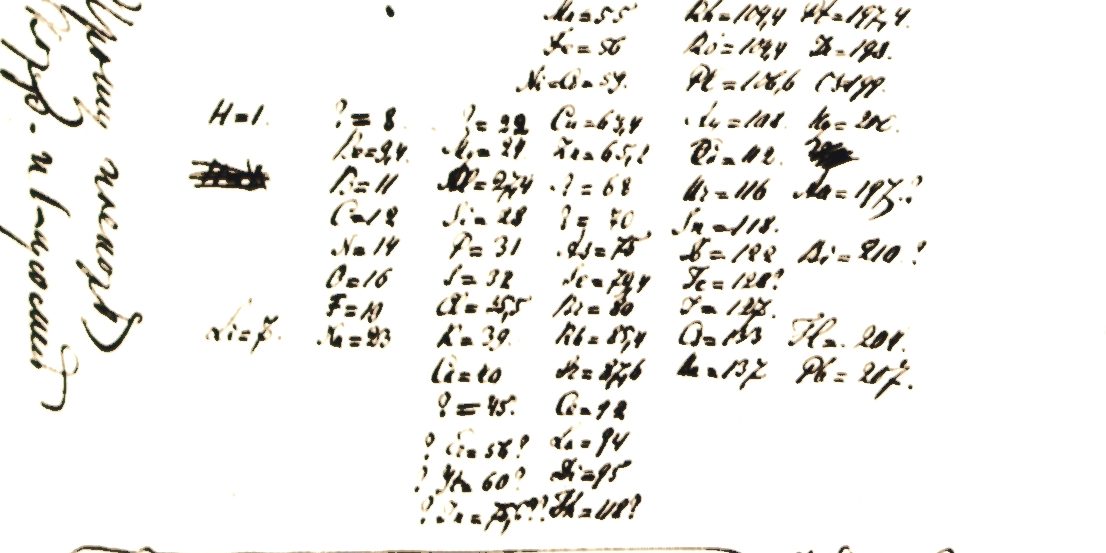 Mn=55 Rh=104,4 Pt=197,4.
Fe=56 Ru=104,4 Ir=198.
Ni=Co=59. Pl=106,6 Os=199.
H=1. ?=8. ?=22 Cu=63,4 Ag=108. Hg=200.
Be=9,4. Mg=24 Zn=65,2 Cd=112.
B=11 Al=27,4 ?=68 Ur=116 Au=197?
C=12 Si=28 ?=70 Sn=118.
N=14 P=31 As=75 Sb=122 Bi=210?
O=16 S=32 Se=79,4 Te=128?
F=19 Cl=35,5 Br=80 J=127.
Li=7. Na=23 K=39. Rb=85,4 Cs=133 Tl=204.
Ca=40 Sr=87,6 Ba=137 Pb=207.
?=45. Ce=92
? Er=56? La=94
? Yt=60? Di=95
? In=75,6?? Th=118?